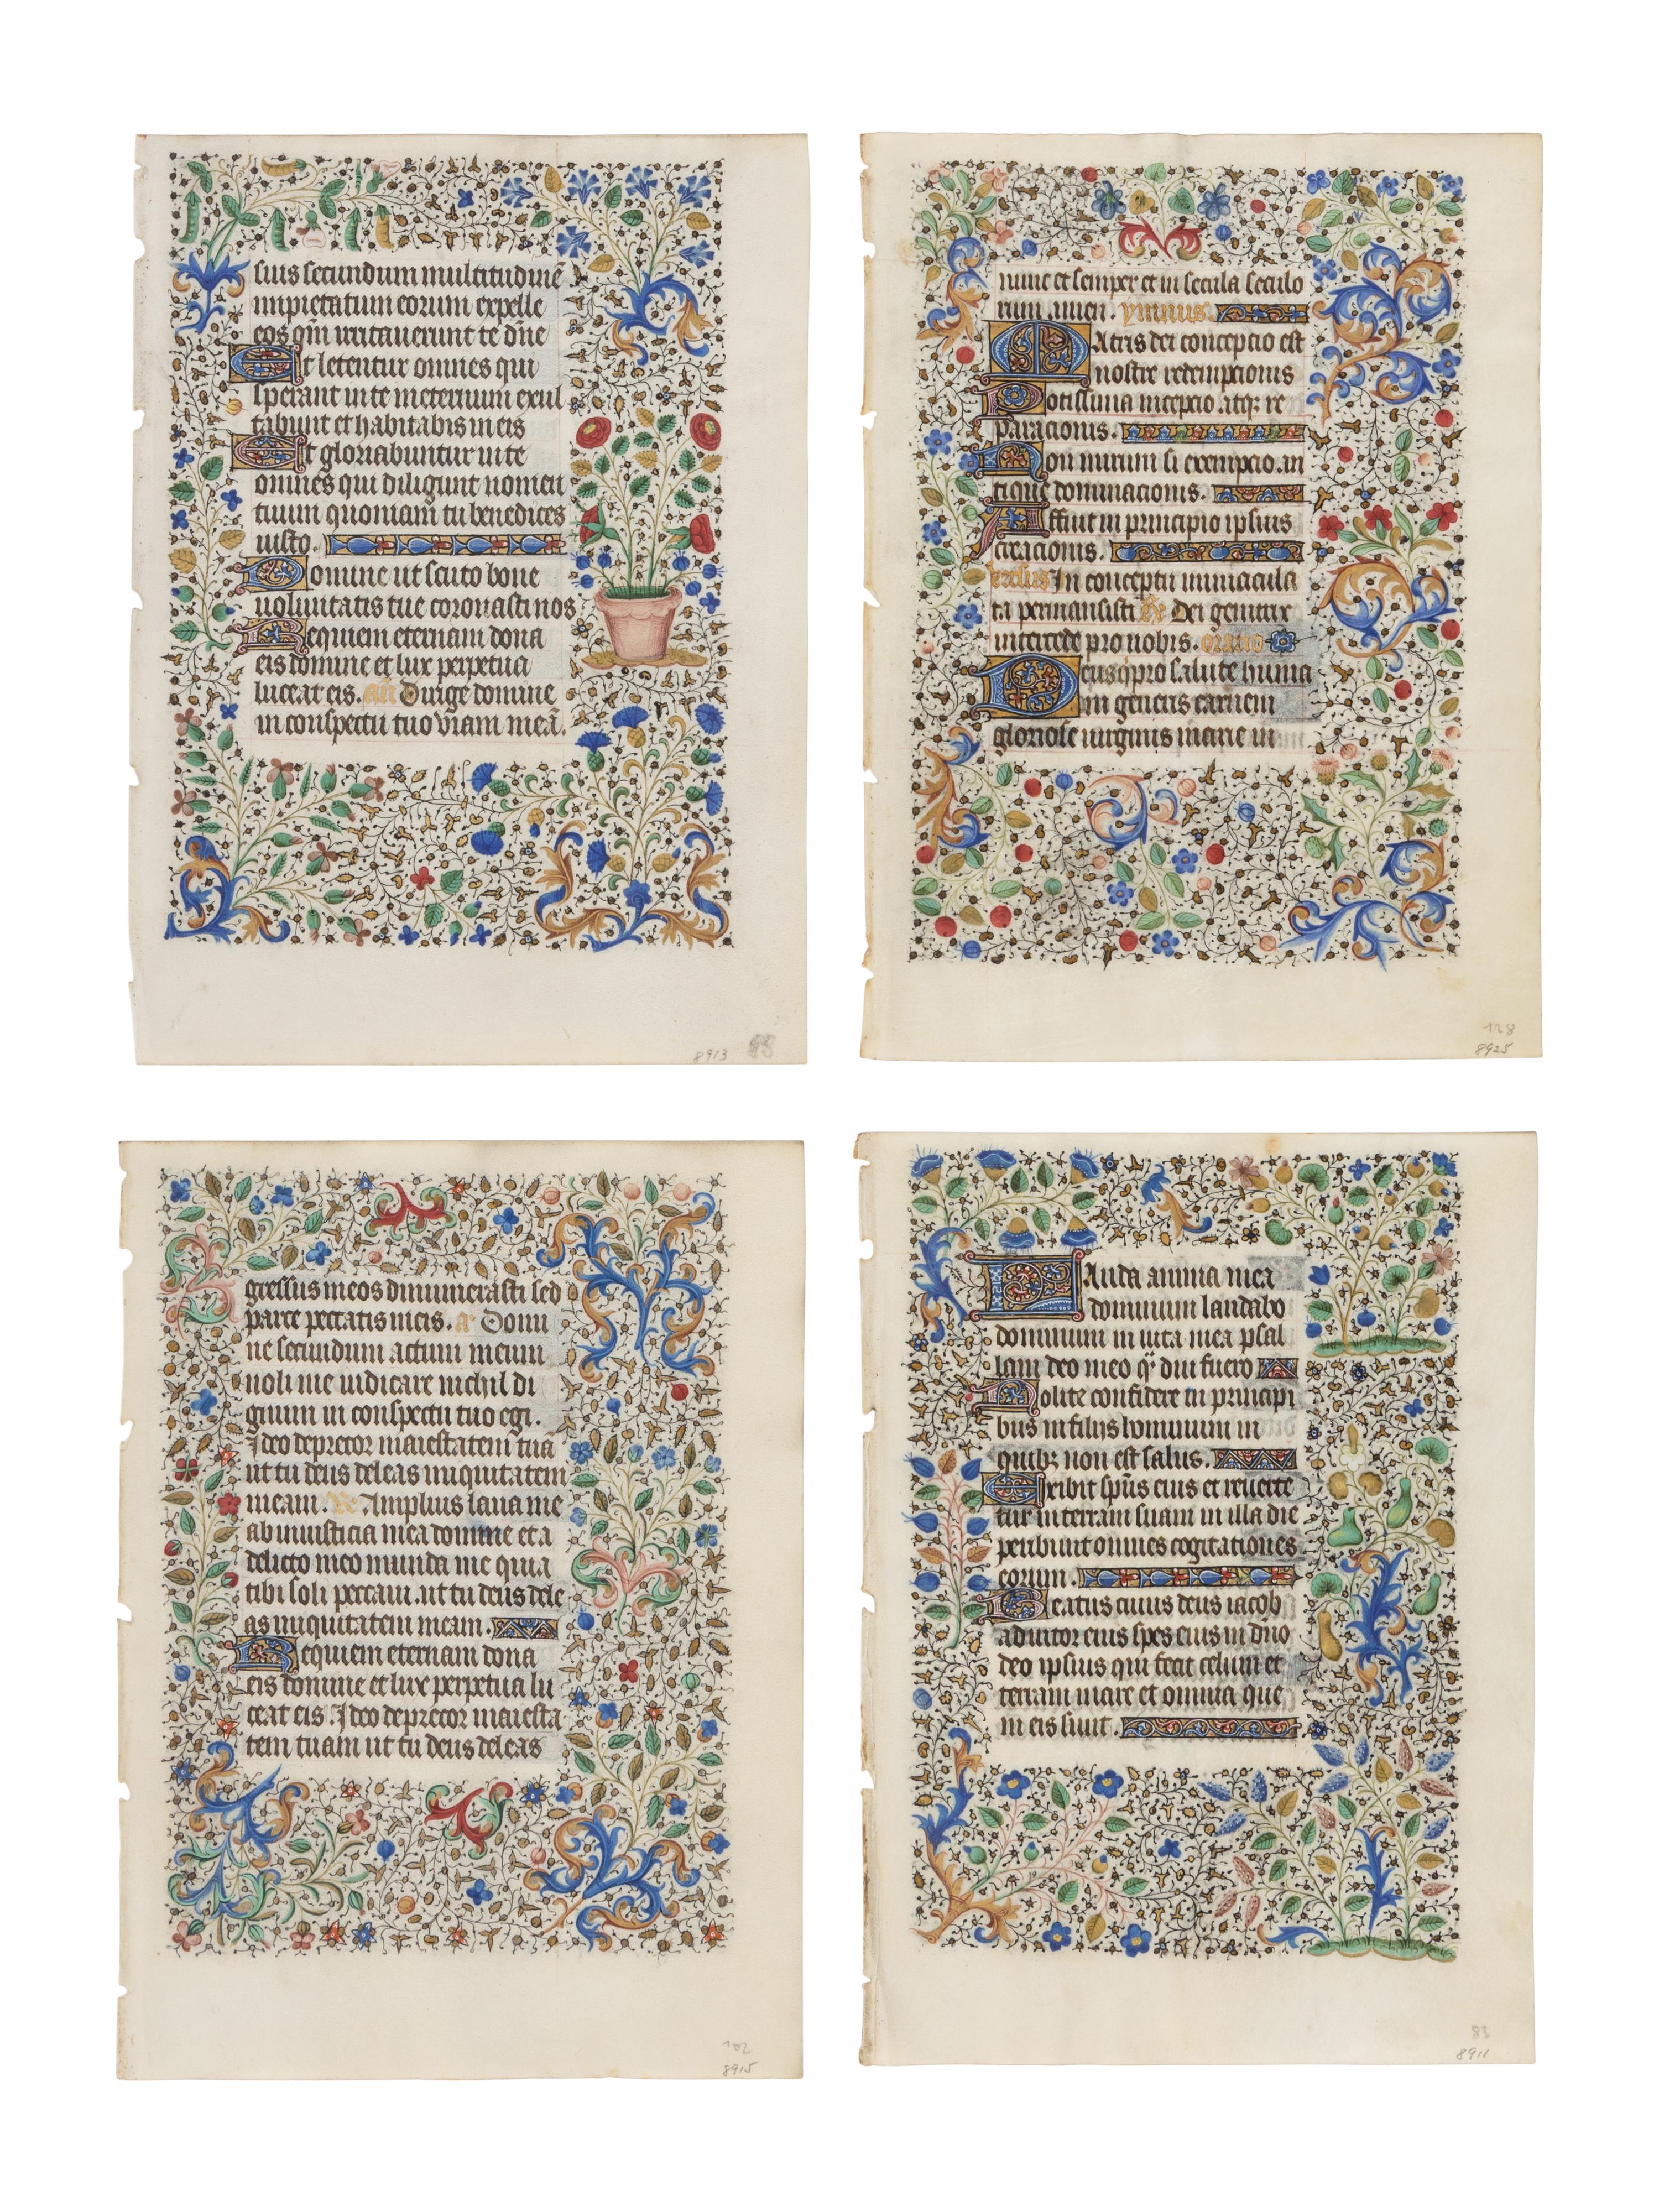 suis secundum multitudinē
impietatum eorum expelle
eos qm̄ irritauerunt te dn̄e
Et letentur omnes qui
sperant in te in eternum exul
tabunt et habitabis in eis
Et gloriabuntur in te
omnes qui diligunt nomen
tuum quoniam tu benedices
iusto.
Domine ut scuto bone
uoluntatis tue coronasti nos
Requiem eternam dona
eis domine et lux perpetua
luceat eis. an̄ Dirige domine
in conspectu tuo viam meā.
8913 88
nunc et semper et in secula seculo
rum amen. ymnus.
Matris dei concepcio est
nostre redempcionis
Potissima incepcio. atq; re
paracionis.
Non mirum si exempcio. an
tique dominacionis.
Affuit in principio ipsius
creacionis.
versus In conceptu immacula
ta permansisti R̄ Dei genitrix
intercede pro nobis. oratio
Deus q̇ pro salute huma
ni generis carnem
gloriose uirginis marie in
128
8925
gressus meos dinumerasti sed
parce peccatis meis. a. Domi
ne secundum actum meum
noli me iudicare nichil di
gnum in conspectu tuo egi.
Ideo deprecor maiestatem tuā
ut tu deus deleas iniquitatem
meam. V̄ Amplius laua me
ab iniusticia mea domine et a
delicto meo munda me quia
tibi soli peccaui. ut tu deus dele
as iniquitatem meam.
Requiem eternam dona
eis domine et lux perpetua lu
ceat eis. Ideo deprecor maiesta
tem tuam ut tu deus deleas
102
8915
Lauda anima mea
dominum laudabo
dominum in uita mea psal
lam deo meo q̇ diu fuero
Nolite confidere in principi
bus in filijs hominum in
quib; non est salus.
Exibit sp̄us eius et reuerte
tur in terram suam in illa die
peribunt omnes cogitationes
eorum.
Beatus cuius deus iacob
adiutor eius spes eius in dn̄o
deo ipsius qui fecit celum et
terram mare et omnia que
in eis sunt.
83
8911